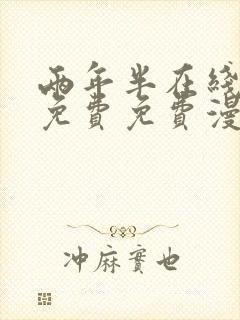 兩年半在綫
免費免費漫
冲麻實也